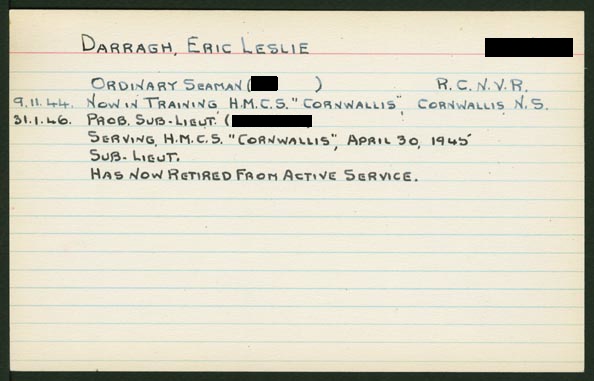 DARRAGH, ERIC LESLIE
ORDINARY SEAMAN ( ) R.C.N.V.R.
9.11.44. NOW IN TRAINING H.M.C.S. "CORNWALLIS", CORNWALLIS, N.S.
31.1.46. PROB. SUB-LIEUT. (
SERVING, H.M.C.S. "CORNWALLIS", APRIL 30, 1945
SUB-LIEUT.
HAS NOW RETIRED FROM ACTIVE SERVICE.